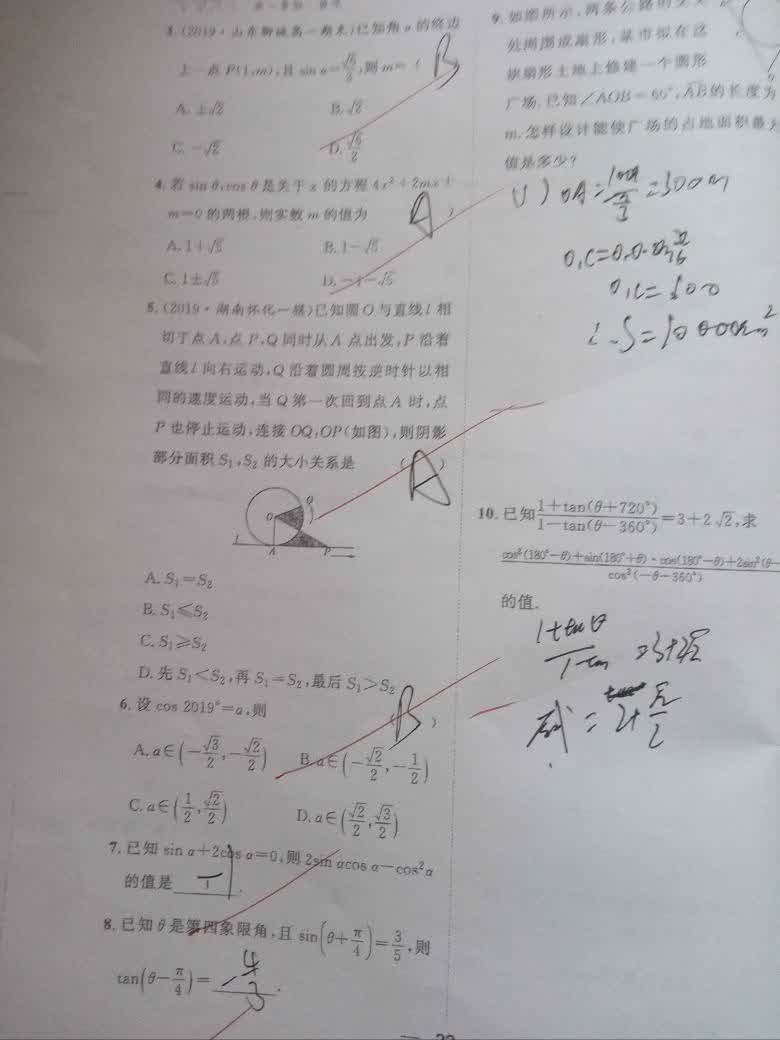 3. (2019·山东聊城高一期末)已知角α的终边
上一点P(1,m),且sin α=√6/3,则m= (B
A. ±√2 B. √2
C. -√2 D. √6/2
4. 若 sin θ,cos θ 是关于 x 的方程 4x²+2mx+
m=0 的两根,则实数 m 的值为 A )
A. 1+√5 B. 1-√5
C. 1±√5 D. -1-√5
5. (2019·湖南怀化一模)已知圆O与直线l相
切于点A,点P,Q同时从A点出发,P沿着
直线l向右运动,Q沿着圆周按逆时针以相
同的速度运动,当Q第一次回到点A时,点
P也停止运动,连接OQ,OP(如图),则阴影
部分面积S₁,S₂的大小关系是 (A)
O Q
l A P
A. S₁=S₂
B. S₁≤S₂
C. S₁≥S₂
D. 先S₁<S₂,再S₁=S₂,最后S₁>S₂
6. 设 cos 2019°=a,则 (B)
A. a∈(-√3/2,-√2/2) B. a∈(-√2/2,-1/2)
C. a∈(1/2,√2/2) D. a∈(√2/2,√3/2)
7. 已知 sin α+2cos α=0,则 2sin αcos α-cos²α
的值是 -1 .
8. 已知θ是第四象限角,且 sin(θ+π/4)=3/5,则
tan(θ-π/4)= -4/3 .
9. 如图所示,两条公路的交
处周围成扇形,某市拟在这
块扇形土地上修建一个圆形
广场.已知∠AOB=60°,AB的长度为
m.怎样设计能使广场的占地面积最
值是多少?
=300m
10. 已知 (1+tan(θ+720°))/(1-tan(θ-360°))=3+2√2,求
(cos²(180°-θ)+sin(180°+θ)·cos(180°-θ)+2sin²(θ-
cos²(-θ-360°)
的值.
1+tan θ